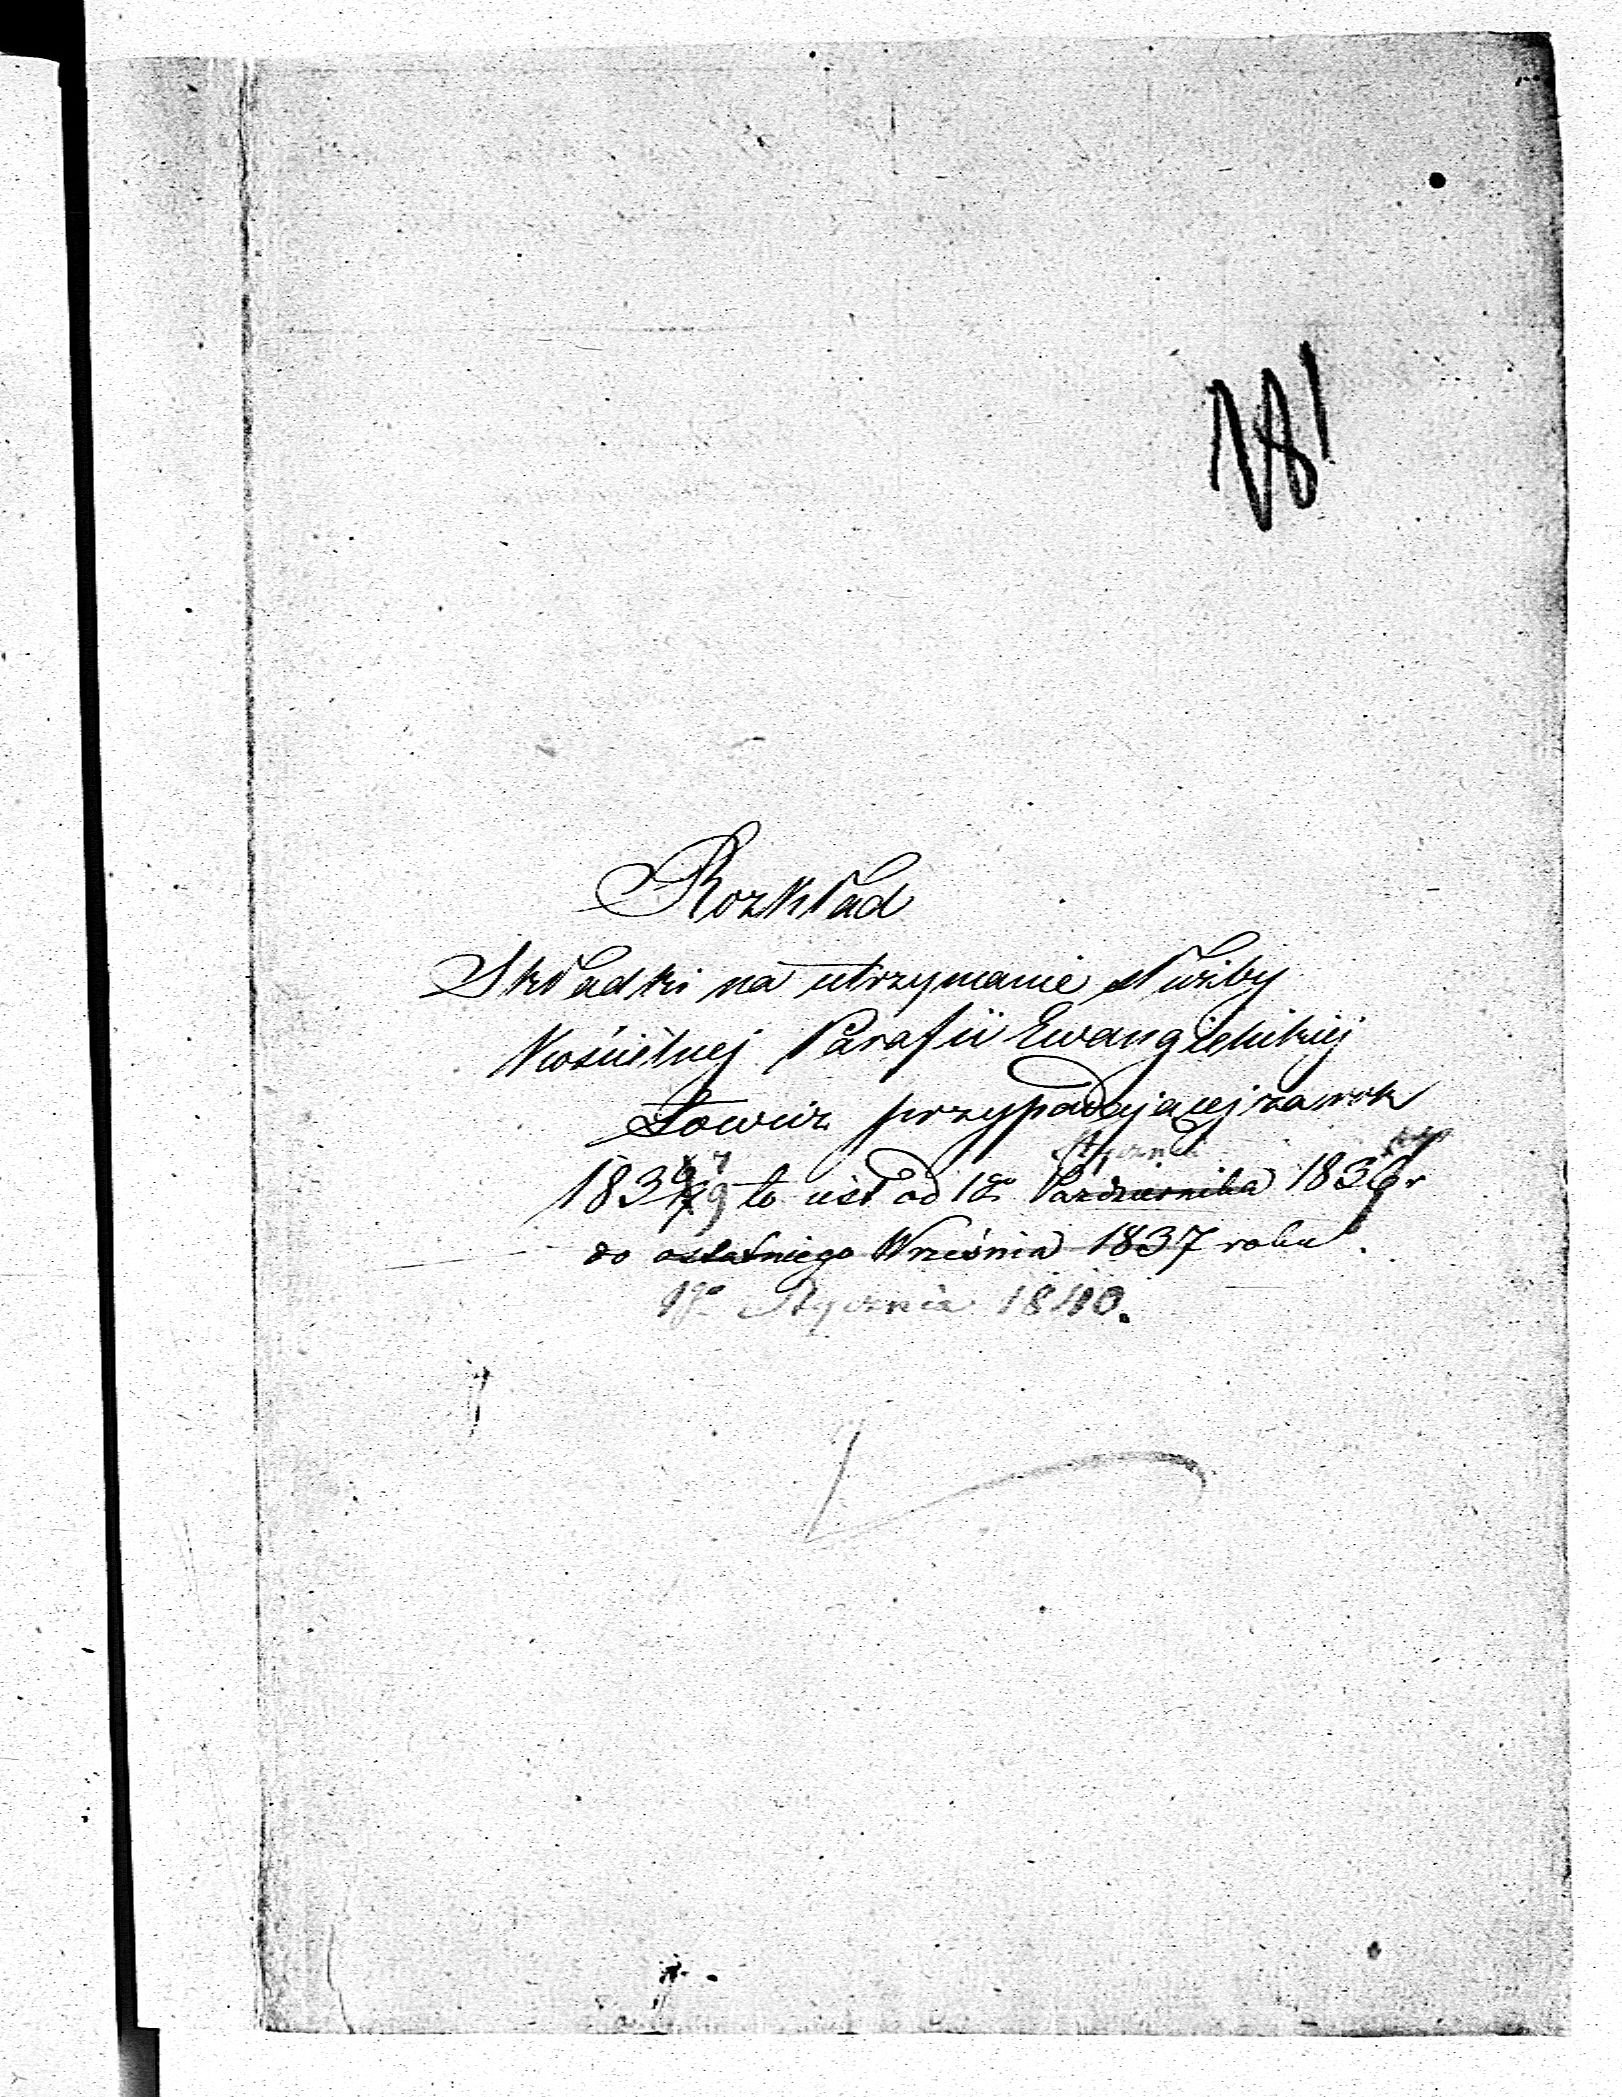 181
Rozkład
Składki na utrzymanie służby
Kościelnej Parafii Ewangielickiej
Łowicz przypadającej za rok
1839 to iest od 1go Stycznia Października 1836 r
do ostatniego Września 1837 roku.
1go Stycznia 1840.